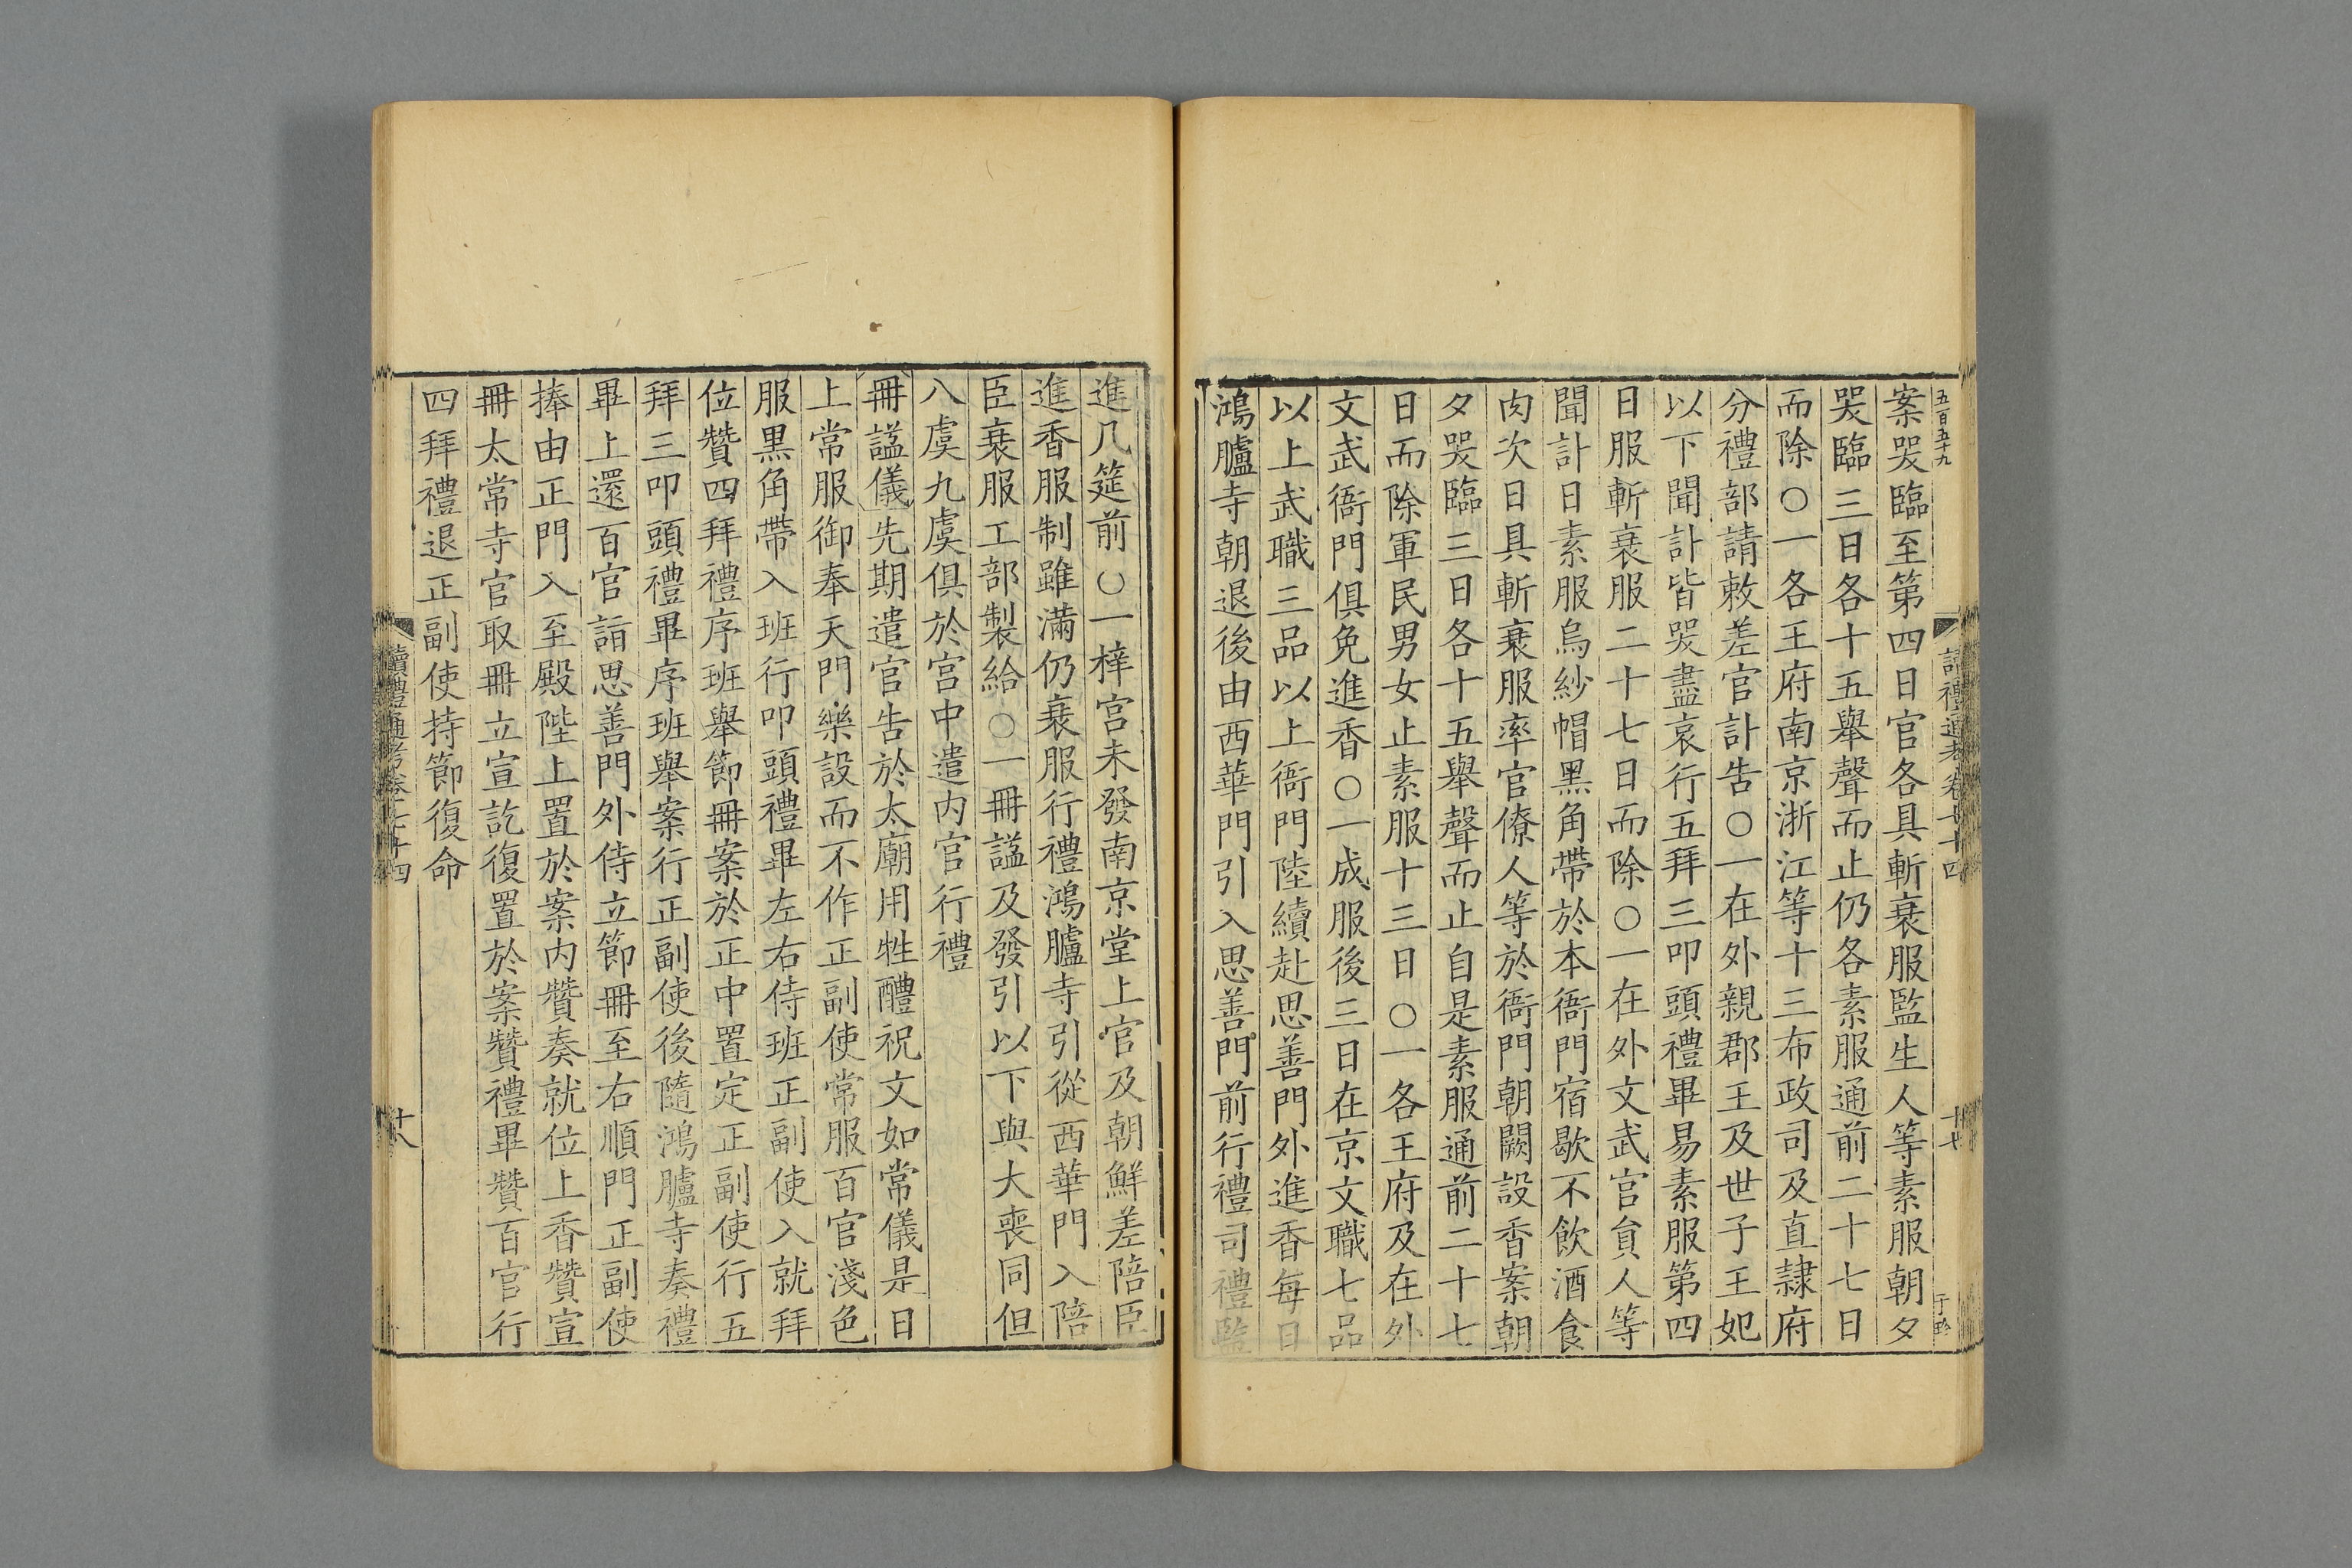 五百五十九
讀禮通考卷七十四
十七
案哭臨至第四日官各具斬衰服監生人等素服朝夕
哭臨三日各十五舉聲而止仍各素服通前二十七日
而除○一各王府南京浙江等十三布政司及直隷府
分禮部請敕差官訃告○一在外親郡王及世子王妃
以下聞訃皆哭盡哀行五拜三叩頭禮畢易素服第四
日服斬衰服二十七日而除○一在外文武官員人等
聞訃日素服烏紗帽黑角帶於本衙門宿歇不飲酒食
肉次日具斬衰服率官僚人等於衙門朝闕設香案朝
夕哭臨三日各十五舉聲而止自是素服通前二十七
日而除軍民男女止素服十三日○一各王府及在外
文武衙門俱免進香○一成服後三日在京文職七品
以上武職三品以上衙門陸續赴思善門外進香每日
鴻臚寺朝退後由西華門引入思善門前行禮司禮監
進几筵前○一梓宮未發南京堂上官及朝鮮差陪臣
進香服制雖滿仍衰服行禮鴻臚寺引從西華門入陪
臣衰服工部製給○一冊謚及發引以下與大喪同但
八虞九虞俱於宮中遣內官行禮
冊謚儀先期遣官告於太廟用牲醴祝文如常儀是日
上常服御奉天門樂設而不作正副使常服百官淺色
服黑角帶入班行叩頭禮畢左右侍班正副使入就拜
位贊四拜禮序班舉節冊案於正中置定正副使行五
拜三叩頭禮畢序班舉案行正副使後隨鴻臚寺奏禮
畢上還百官詣思善門外侍立節冊至右順門正副使
捧由正門入至殿陛上置於案內贊奏就位上香贊宣
冊太常寺官取冊立宣訖復置於案贊禮畢贊百官行
四拜禮退正副使持節復命
讀禮通考卷七十四
十八